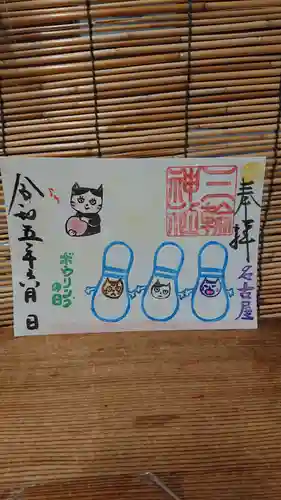 奉拝
名古屋
三輪
神社
ボウリング
の日
令和五年六月 日